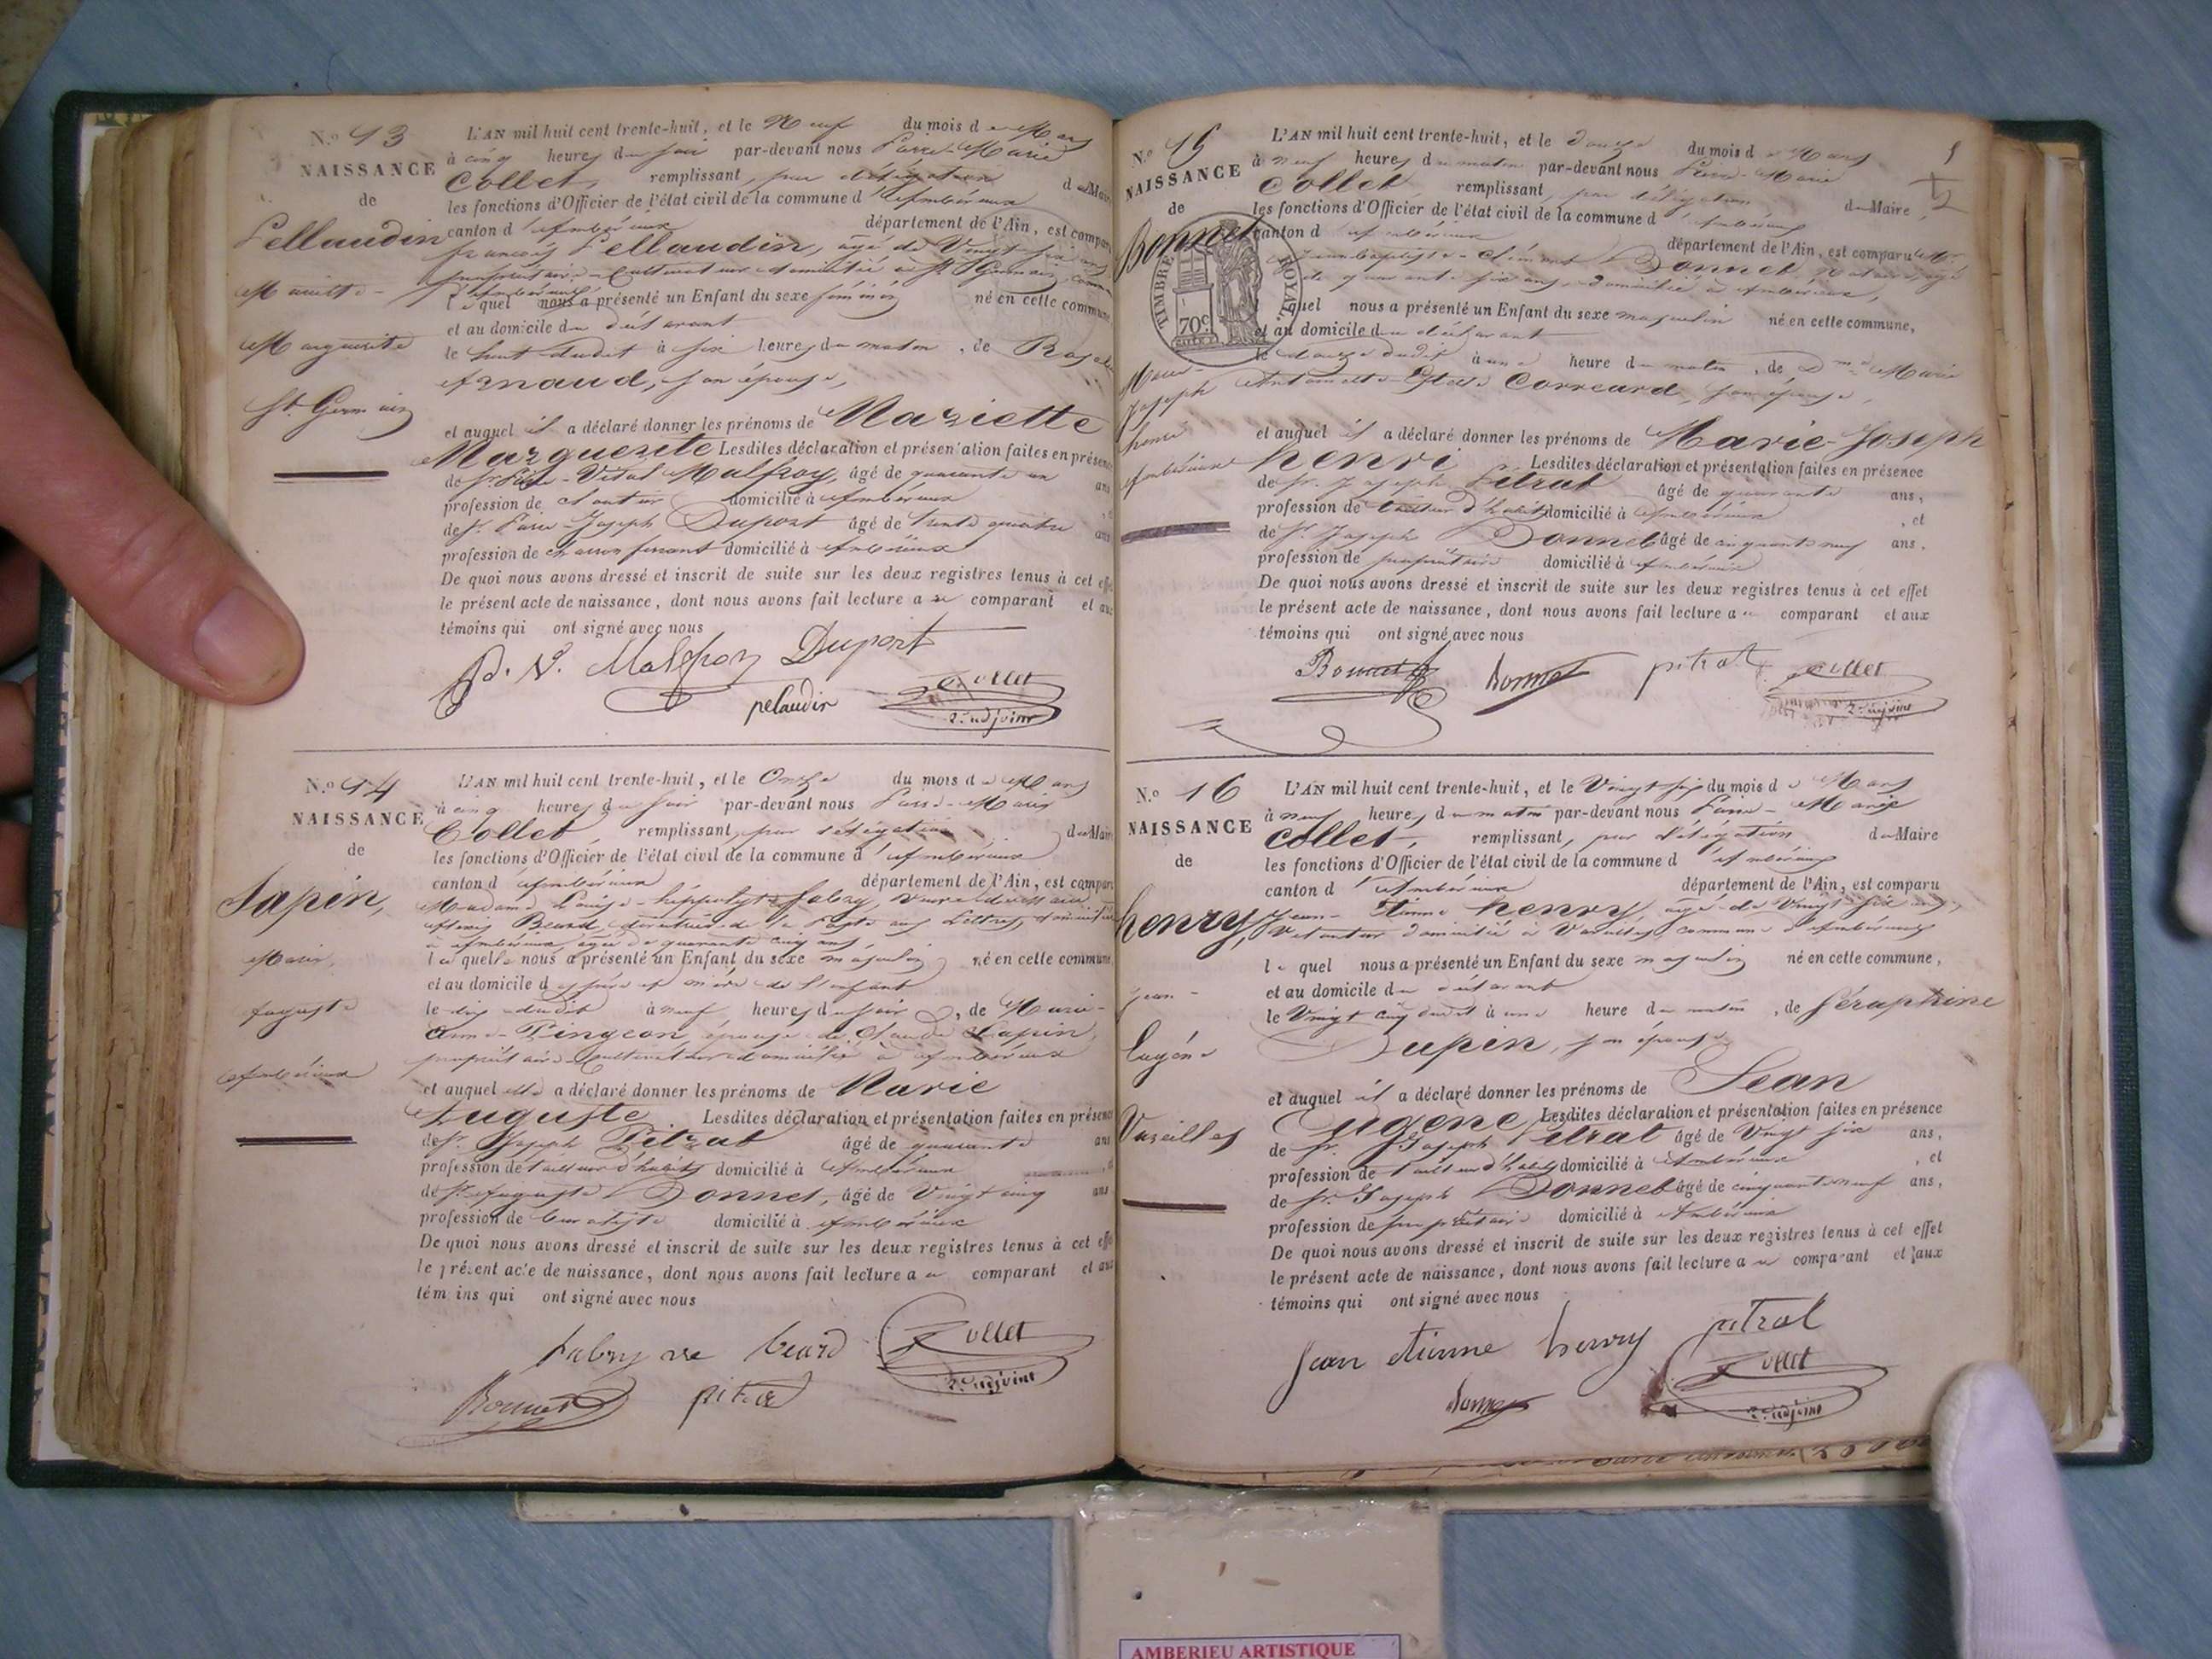 N.º 13
NAISSANCE
de
Pellaudin
Mariette-
Marguerite
St Germain
L'AN mil huit cent trente-huit, et le Neuf du mois de Mars
à cinq heures du soir par-devant nous Pierre-Marie
Collet, remplissant, par délégation du Maire
les fonctions d'Officier de l'état civil de la commune d'Ambérieux
canton d'Ambérieux département de l'Ain, est comparu
françois Pellaudin, âgé de Vingt six ans
propriétaire-Cultivateur domicilié à St Germain, commune
d'Ambérieux
lequel nous a présenté un Enfant du sexe féminin né en cette commune
et au domicile du déclarant
le huit dudit à six heures du matin, de
Arnaud, son épouse,
et auquel il a déclaré donner les prénoms de Mariette
Marguerite Lesdites déclaration et présentation faites en présence
de Sr. Vital Malfroy, âgé de quarante un ans
profession de domicilié à Ambérieux
de Sr. Pierre-Joseph Dupont âgé de trente quatre ans
profession de domicilié à Ambérieux
De quoi nous avons dressé et inscrit de suite sur les deux registres tenus à cet effet
le présent acte de naissance, dont nous avons fait lecture au comparant et aux
témoins qui ont signé avec nous
P. V. Malfroy Dupont
pelaudin Collet
2e. adjoint
N.º 14
NAISSANCE
de
Sapin,
Marie,
Auguste
Ambérieux
L'AN mil huit cent trente-huit, et le Onze du mois de Mars
à cinq heures du soir par-devant nous Pierre-Marie
Collet remplissant, par délégation du Maire
les fonctions d'Officier de l'état civil de la commune d'Ambérieux
canton d'Ambérieux département de l'Ain, est comparu
Madame Louise-hippolyte fabry, veuve de
Béard, directrice de la Poste aux Lettres, domiciliée
à Ambérieux âgée de quarante cinq ans,
laquelle nous a présenté un Enfant du sexe masculin né en cette commune
et au domicile des père et mère de l'enfant
le dix dudit à neuf heures du soir, de Marie-
Anne-Pingeon, épouse de Claude Sapin,
propriétaire-Cultivateur domicilié à Ambérieux
et auquel elle a déclaré donner les prénoms de Marie
Auguste Lesdites déclaration et présentation faites en présence
de Sr. Joseph Pitrat âgé de quarante ans
profession de tailleur d'habits domicilié à Ambérieux
de Sr. Auguste Bonnet, âgé de Vingt cinq ans
profession de domicilié à Ambérieux
De quoi nous avons dressé et inscrit de suite sur les deux registres tenus à cet effet
le présent acte de naissance, dont nous avons fait lecture au comparant et aux
témoins qui ont signé avec nous
fabry ve beard Collet
2e. adjoint
Bonnet pitrat
N.º 15
NAISSANCE
de
Bonnet
TIMBRE ROYAL
70c
Marie-
Joseph
henri
Ambérieux
L'AN mil huit cent trente-huit, et le douze du mois de Mars
à neuf heures du matin par-devant nous Pierre-Marie
Collet remplissant, par délégation du Maire,
les fonctions d'Officier de l'état civil de la commune d'Ambérieux
canton d'Ambérieux département de l'Ain, est comparu Mr.
Jean baptiste-Clément Bonnet, Notaire, âgé
de quarante six ans, domicilié à Ambérieux,
lequel nous a présenté un Enfant du sexe masculin né en cette commune,
et au domicile du déclarant
le douze dudit à une heure du matin, de Dme. Marie
Antoinette-Estelle Correard, son épouse,
et auquel il a déclaré donner les prénoms de Marie-Joseph
henri Lesdites déclaration et présentation faites en présence
de Sr. Joseph Pitrat âgé de quarante ans,
profession de tailleur d'habits domicilié à Ambérieux, et
de Sr. Joseph Bonnet âgé de cinquante neuf ans,
profession de propriétaire domicilié à Ambérieux
De quoi nous avons dressé et inscrit de suite sur les deux registres tenus à cet effet
le présent acte de naissance, dont nous avons fait lecture au comparant et aux
témoins qui ont signé avec nous
Bonnet bonnet pitrat Collet
2e. adjoint
N.º 16
NAISSANCE
de
henry,
Jean-
Eugène
Vareilles
L'AN mil huit cent trente-huit, et le Vingt six du mois de Mars
à neuf heures du matin par-devant nous Pierre-Marie
Collet, remplissant, par délégation du Maire
les fonctions d'Officier de l'état civil de la commune d'Ambérieux
canton d'Ambérieux département de l'Ain, est comparu
Jean-Etienne henry, âgé de Vingt six ans,
domicilié à Vareilles, commune d'Ambérieux
lequel nous a présenté un Enfant du sexe masculin né en cette commune,
et au domicile du déclarant
le Vingt cinq dudit à une heure du matin, de Séraphine
Dupin, son épouse
et auquel il a déclaré donner les prénoms de Jean
Eugène Lesdites déclaration et présentation faites en présence
de Sr. Joseph Pitrat âgé de Vingt six ans,
profession de tailleur d'habits domicilié à Ambérieux, et
de Sr. Joseph Bonnet âgé de cinquante neuf ans,
profession de propriétaire domicilié à Ambérieux
De quoi nous avons dressé et inscrit de suite sur les deux registres tenus à cet effet
le présent acte de naissance, dont nous avons fait lecture au comparant et aux
témoins qui ont signé avec nous
Jean etienne henry pitrat
Collet
bonnet 2e. adjoint
AMBERIEU ARTISTIQUE